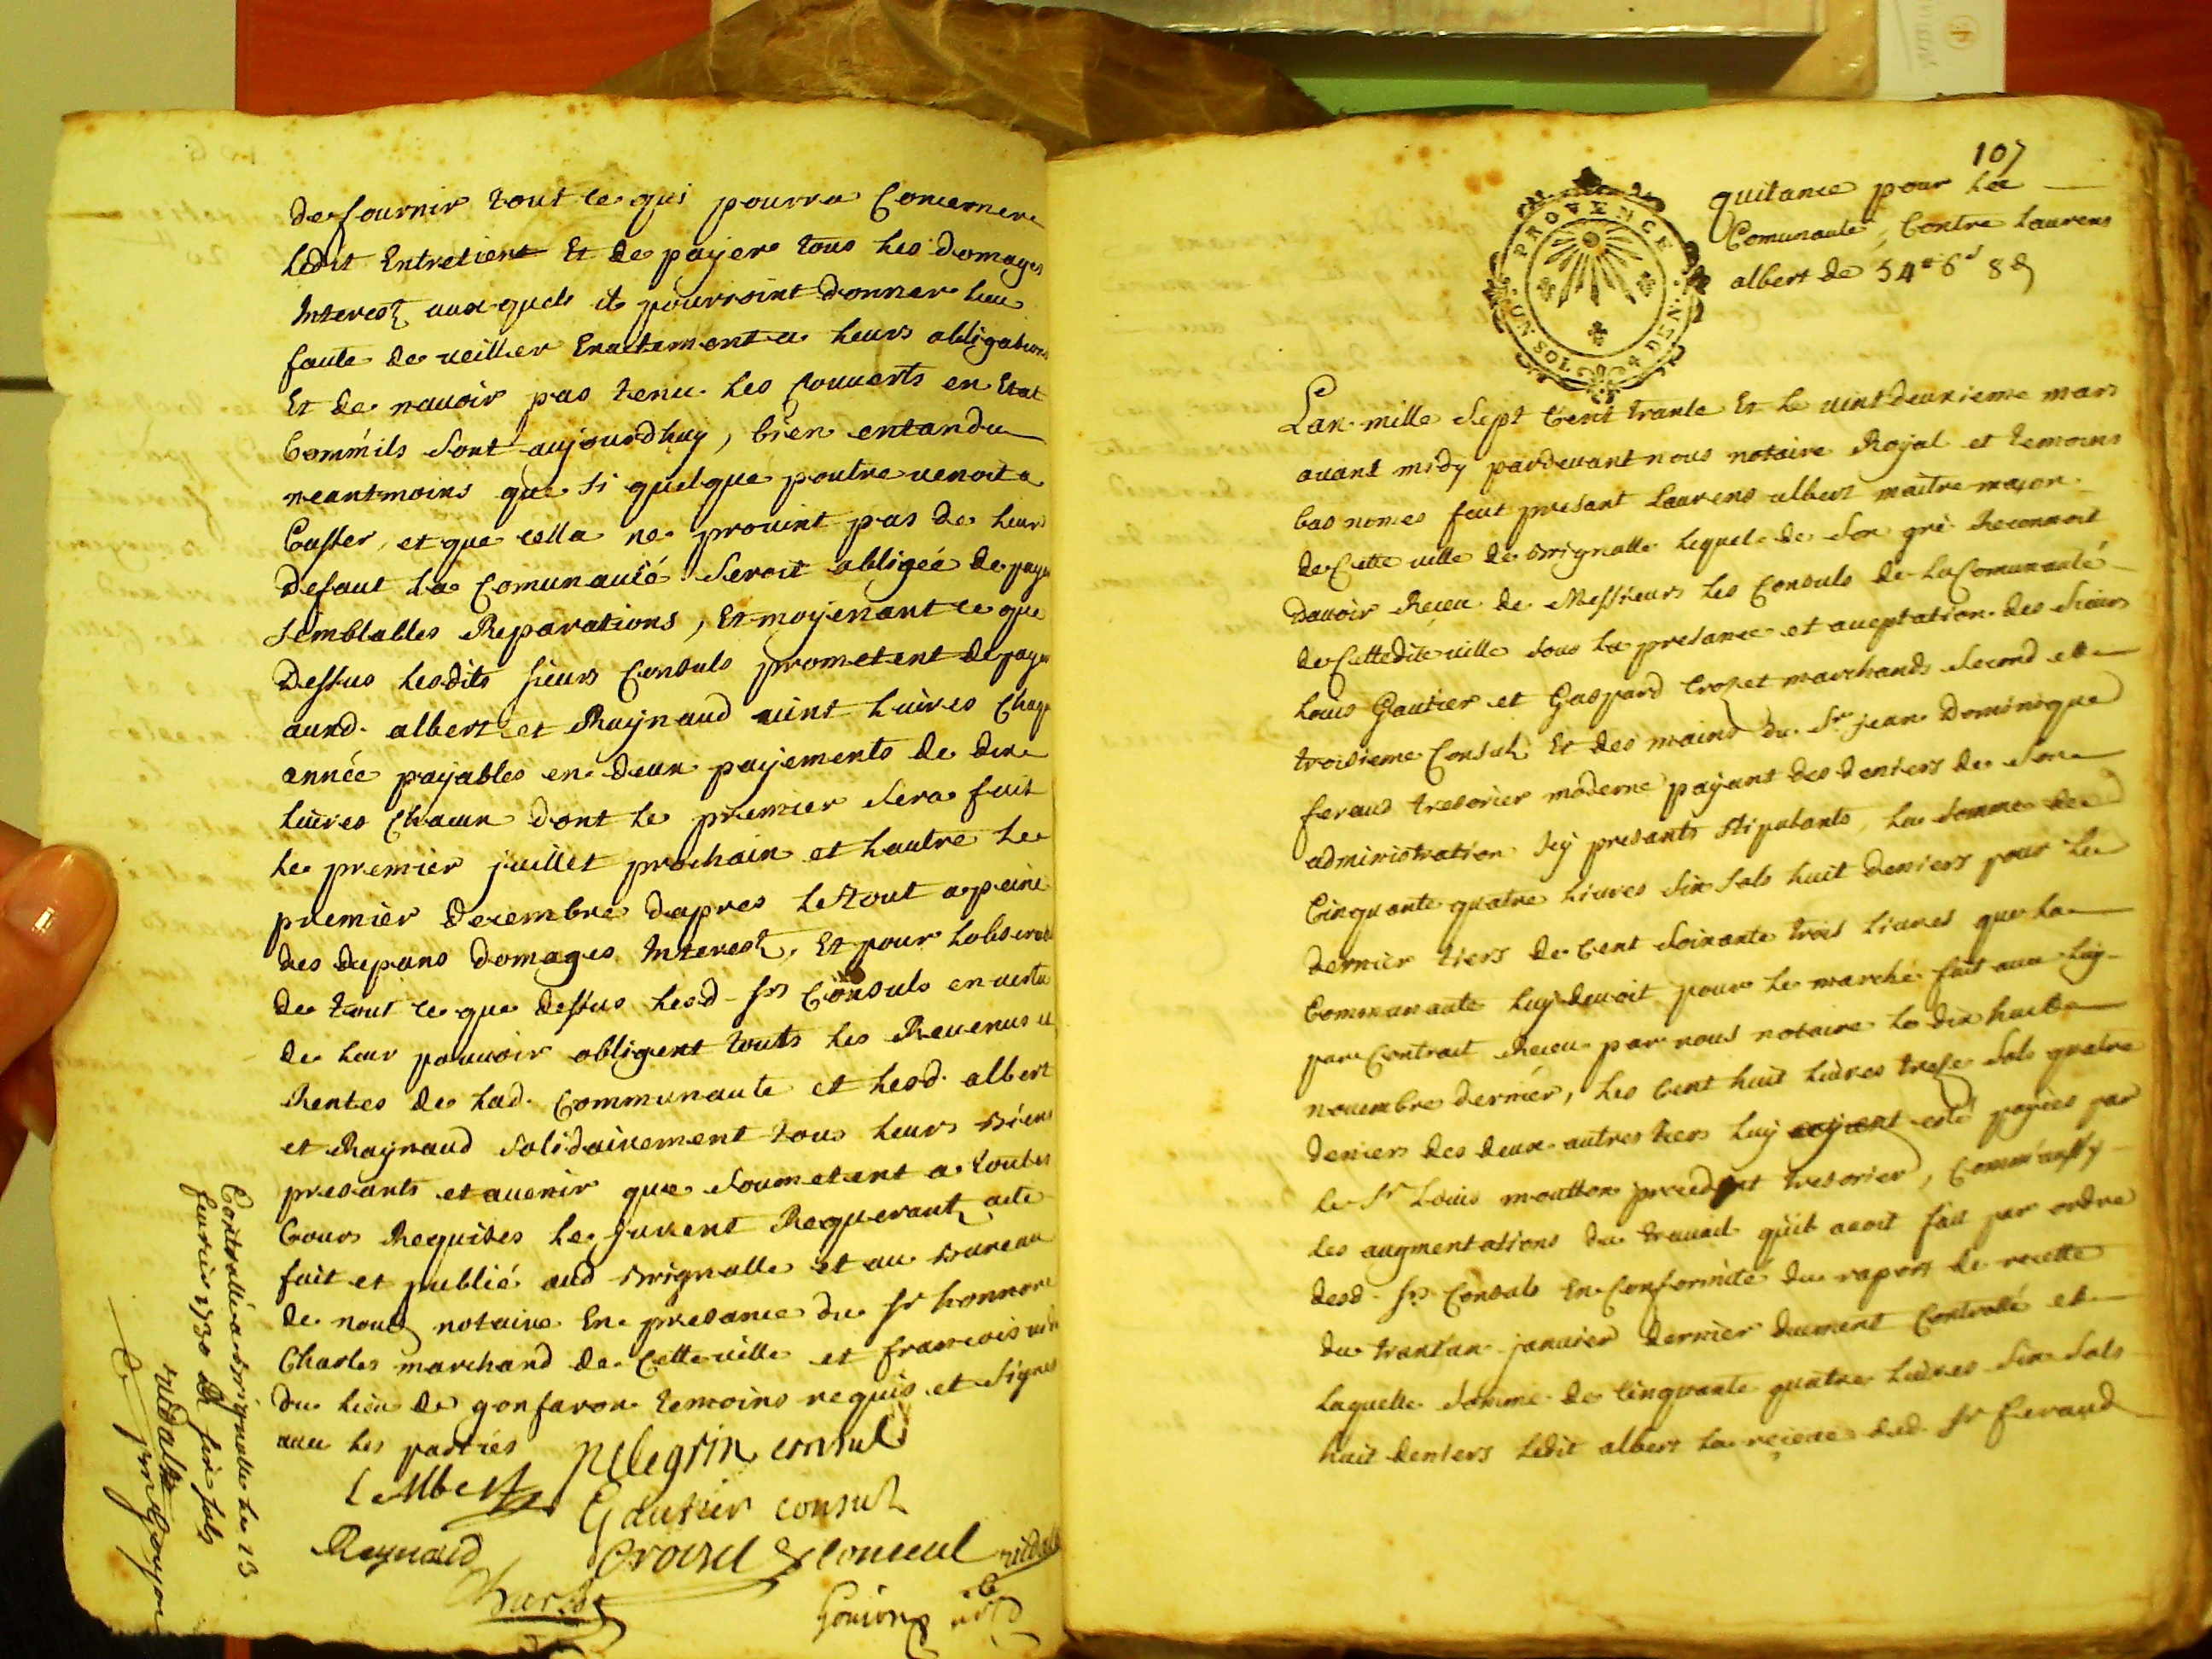 de fournir tout ce qui pourra Concerner
ledit Entretient Et de payer tous les domages
Interest aux quels ils pourroint donner lieu
faute de veiller Exactement a leurs obligations
Et de navoir pas tenu les Couverts en Etat
Comm'ils sont aujourdhuy, bien entandu
neantmoins que si quelque poutre venoit a
Casser, et que cella ne provint pas de leur
defaut la Comunauté seroit obligéé de payer
semblables Reparations, Et moyenant ce que
Dessus lesdits sieurs Consuls prometent de payer
aund. albert et Raynaud vint livres Chaque
année payables en deux payements de dix
livres Chacun dont le premier sera fait
le premier juillet prochain et lautre le
premier decembre dapres le tout a peine
des depans domages Interest, Et pour lobservation
de tout ce que dessus lesd. srs Consuls en vertu
de leur pouvoir obligent touts les Revenus et
Rentes de lad. Communaute et lesd. albert
et Raynaud solidairement tous leurs Biens
presants et avenir que soumetent a toutes
Cours Requises le jurent Requerant acte
fait et publié aud Brignolle et au Bureau
de nous notaire En presance du sr honnore
Charles marchand de Cette ville et francois
du lieu de gonfaron temoins requis et signes
avec les parties
Pelegrin consul
L albert
Gautier consul
Raynaud
Crozet Consul
Charles
Controllé a Brignolle le 13
feurier 1730 R six sols
107
quitance pour la
Comunauté, Contre Laurens
albert de 54# 6s 8d
PROVENCE
UN SOL 4 DEN.
Lan mille sept Cent trante Et le vint deuxieme mars
avant midy pardevant nous notaire Royal et temoins
bas nomes feut presant Laurens albert maitre maçon
de Cette ville de Brignolle lequel de son gré Reconnoit
Davoir Receu de Messieurs les Consuls de la Comunauté
de Cettedite ville sous la presance et aceptation des sieurs
Louis Gautier et Gaspard Crozet marchands second et
troisieme Consul Et des mains du Sr jean Dominique
feraud tresorier moderne payant des deniers de son
administration Icy presants stipulants, la somme de
Cinquante quatre livres six sols huit deniers pour le
dernier tiers de Cent soixante trois livres que la
Communaute luy devoit pour le marché fait avec luy
par Contrait Receu par nous notaire le dix huit
novembre dernier, les Cent huit livres treze sols quatre
deniers des deux autres tiers luy ayent esté payées par
le Sr Louis moutton precedent tresorier, Comm'aussy
les augmentations du travail qu'il avoit fait par ordre
desd. srs Consuls En Conformité du raport de recette
du trantan janvier dernier duement Controllé et
laquelle somme de Cinquante quatre livres six sols
huit deniers ledit albert la reçeue dud. sr feraud